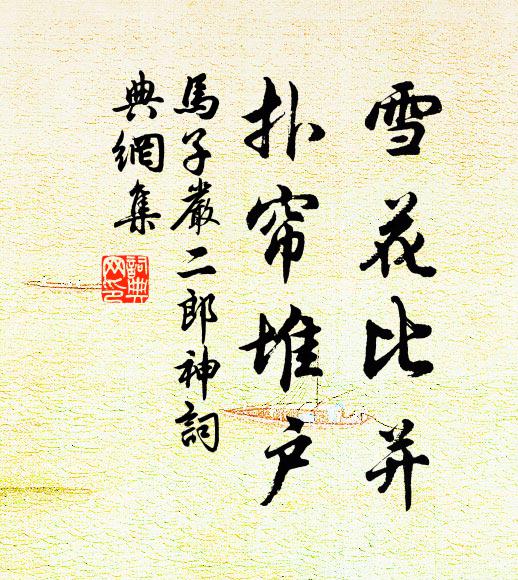 雪花比并
扑帘堆户
馬子嚴二郎神詞
典網集
詞典网印